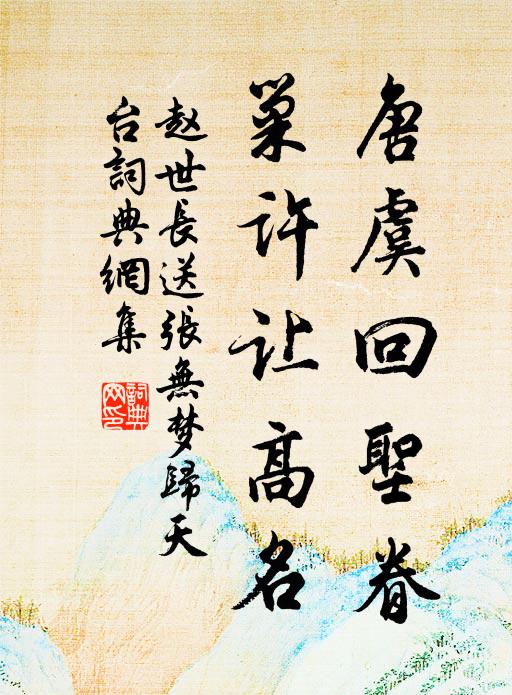 唐虞回聖眷
巢许让高名
赵世長送張無梦歸天
台詞典網集
詞典网印